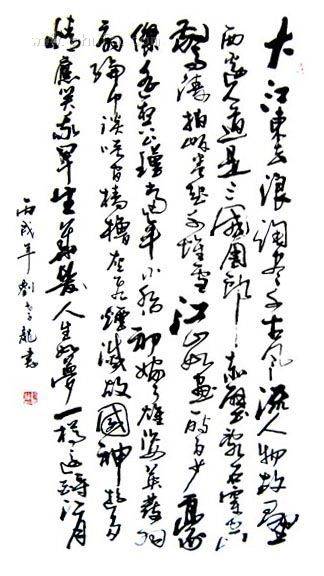 大江東去浪淘盡千古風流人物故壘
西邊人道是三國周郎赤壁亂石穿空
驚濤拍岸卷起千堆雪江山如畫一時多少豪
傑遙想公瑾當年小喬初嫁了雄姿英發羽
扇綸巾談笑間檣櫓灰飛煙滅故國神遊多
情應笑我早生華髮人生如夢一樽還酹江月
丙戌年劉龍書